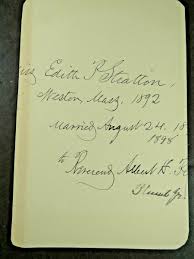 Edith P. Stratton,
Weston, Mass. 1892
Married August 24. 18
1898
to Reverend Albert H.